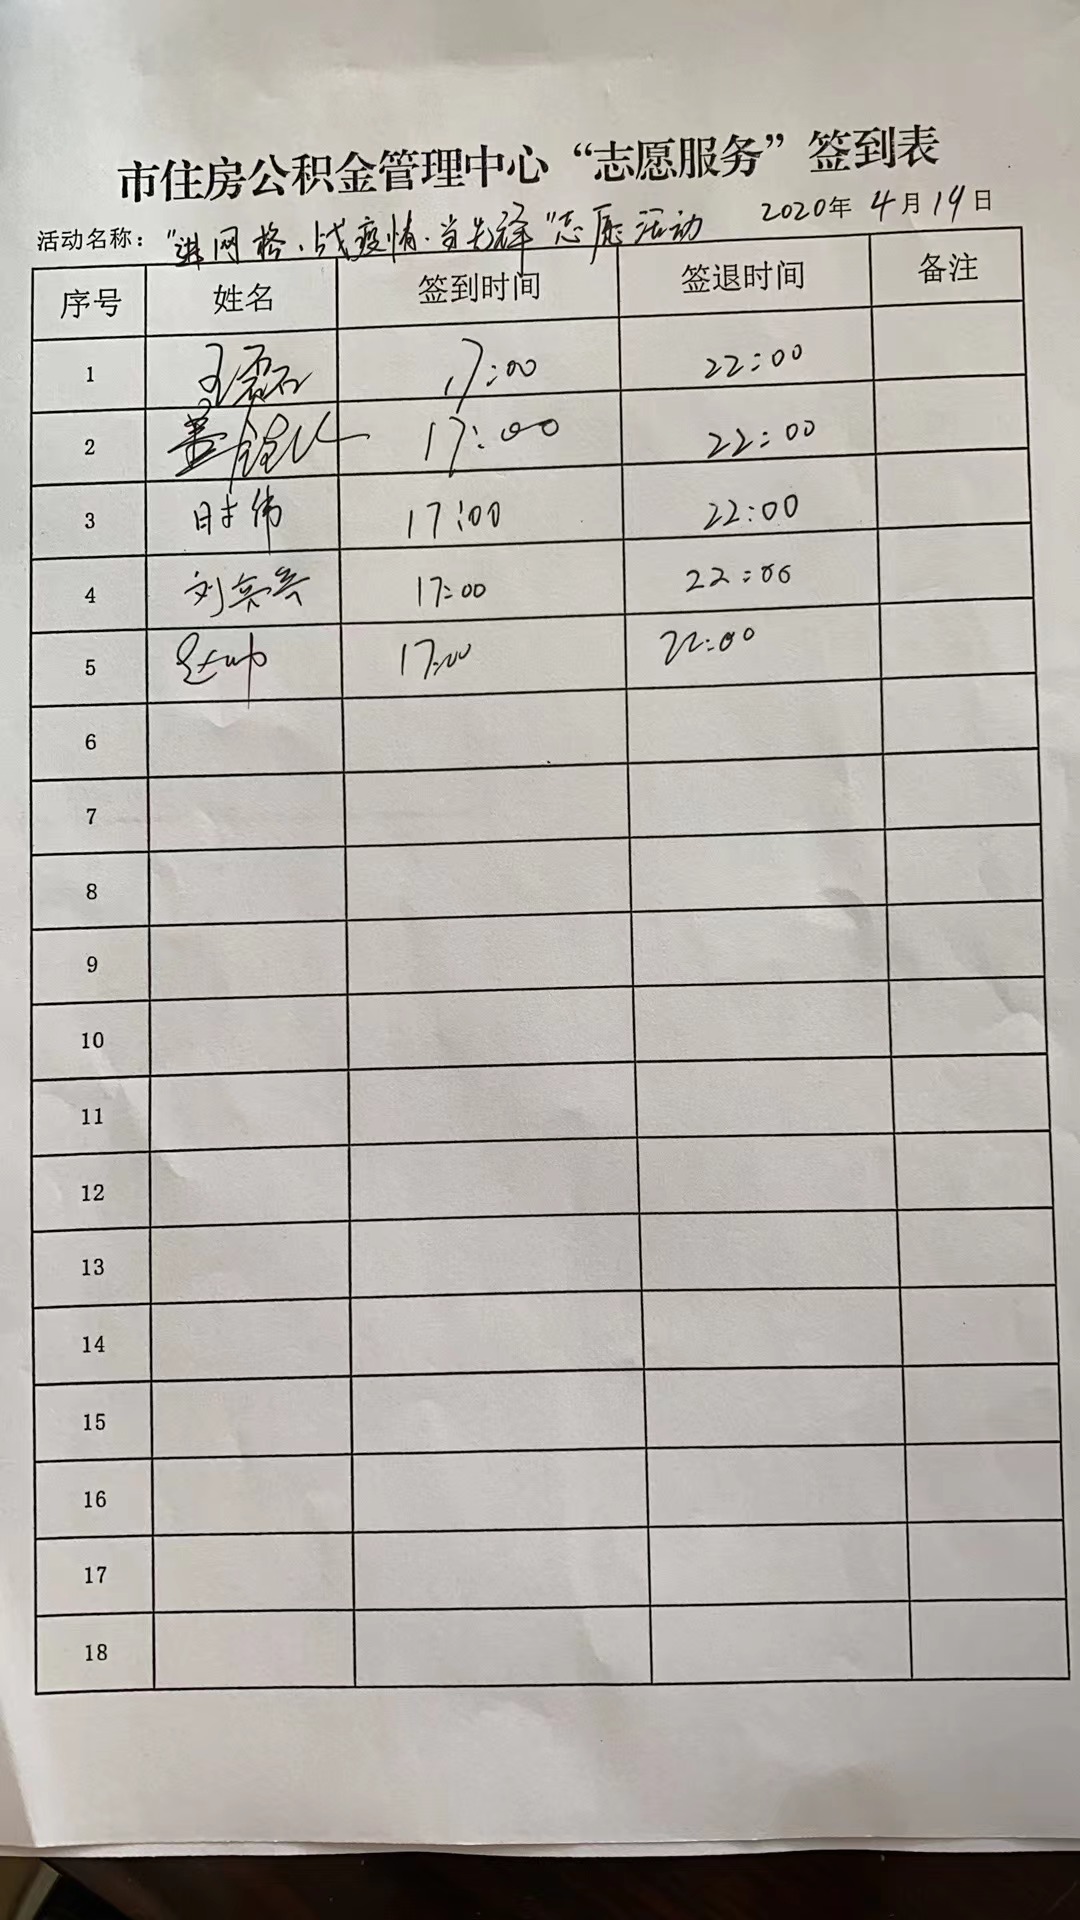 市住房公积金管理中心“志愿服务”签到表
2020年 4月19日
活动名称：“进网格、战疫情、当先锋”志愿活动
序号 姓名 签到时间 签退时间 备注
1 王磊 17:00 22:00
2 17:00 22:00
3 时伟 17:00 22:00
4 刘亮亮 17:00 22:00
5 17:00 22:00
6
7
8
9
10
11
12
13
14
15
16
17
18